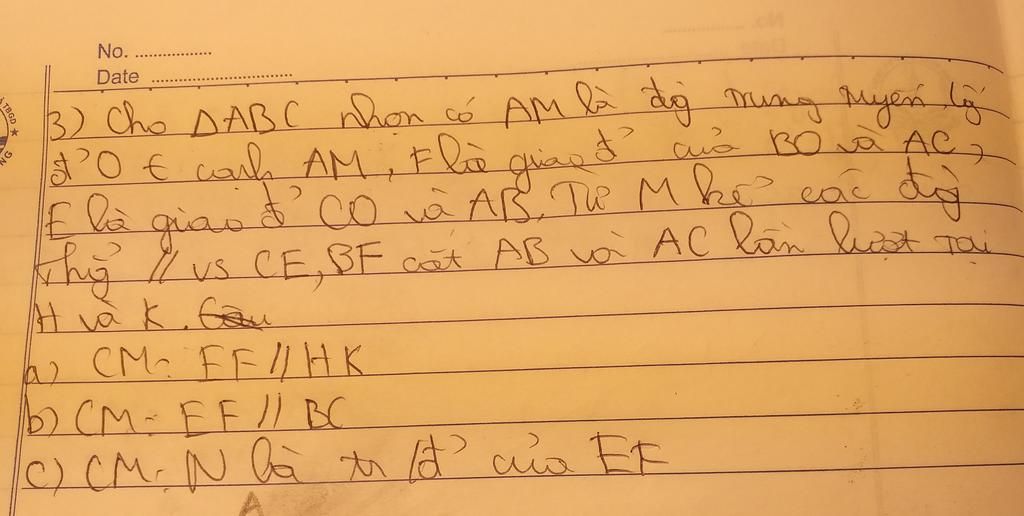 No. ................
Date ................................
3) Cho ΔABC nhọn có AM là đg̀ trung tuyến, lấy
đ' O ∈ cạnh AM, F là giao đ' của BO và AC,
E là giao đ' CO và AB. Từ M kẻ các đg̀
thg̉ // vs CE, BF cắt AB và AC lần lượt tại
H và K.
a) CM: EF // HK
b) CM: EF // BC
c) CM: N là tr/đ' của EF
A